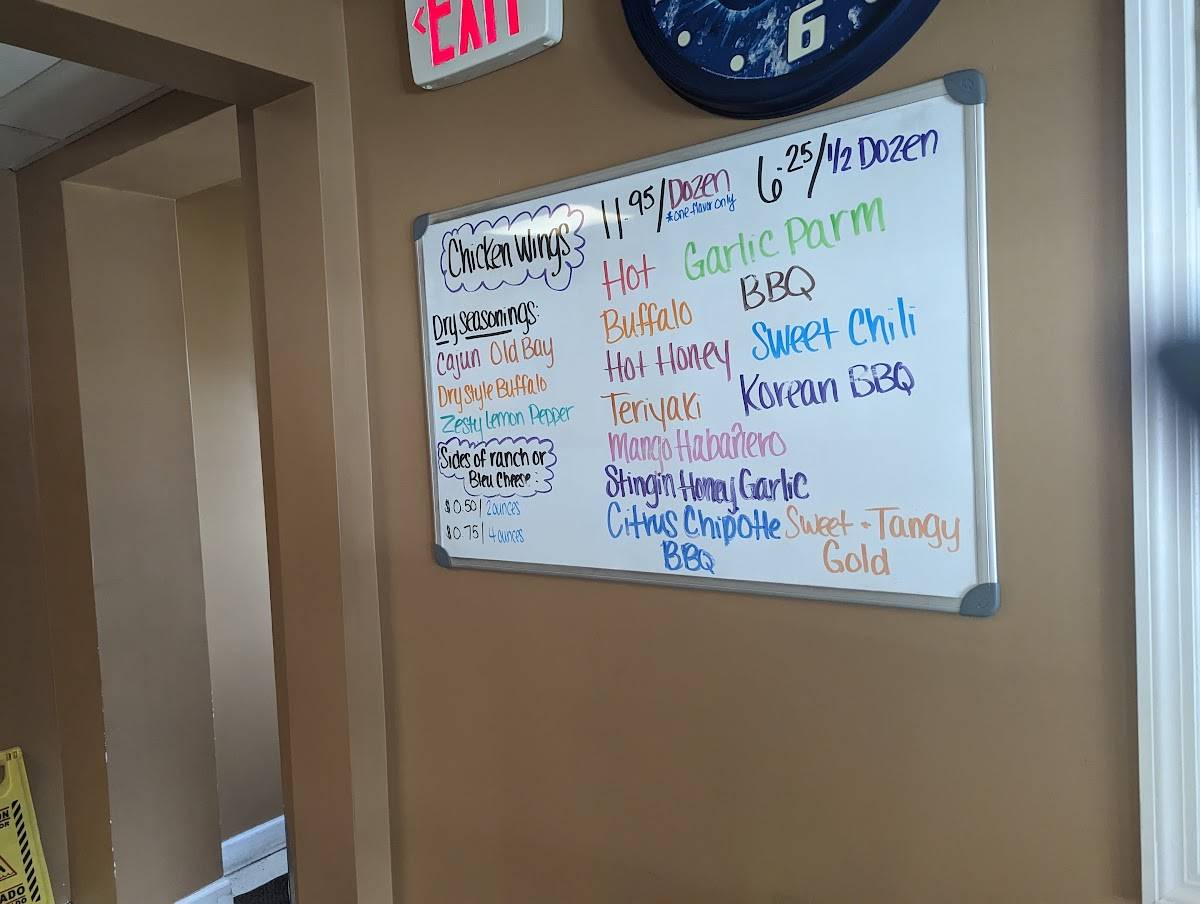 EXIT
6
Chicken Wings
11.95/Dozen
*one flavor only
6.25/1/2 Dozen
Dry seasonings:
Cajun Old Bay
Dry Style Buffalo
Zesty Lemon Pepper
Sides of ranch or
Bleu Cheese:
$0.50/2 ounces
$0.75/4 ounces
Hot Garlic Parm
Buffalo BBQ
Hot Honey Sweet Chili
Teriyaki Korean BBQ
Mango Habañero
Stingin Honey Garlic
Citrus Chipotle BBQ
Sweet - Tangy
Gold